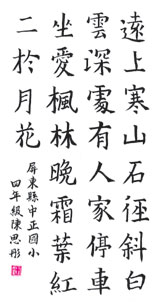 遠上寒山石徑斜白
雲深處有人家停車
坐愛楓林晚霜葉紅
二於月花
屏東縣中正國小
四年級陳思彤